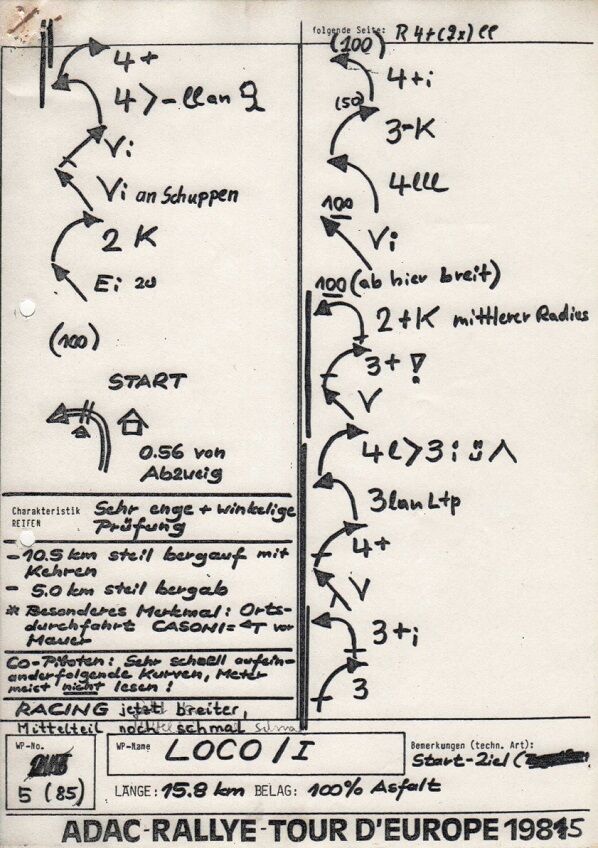 folgende Seite: R 4+(9x) ll
4+
4>-llan
Vi
Vi an Schuppen
2 K
Ei 20
(100)
START
0.56 von
Abzweig
Charakteristik
REIFEN
Sehr enge + winkelige
Prüfung
- 10.5 km steil bergauf mit
Kehren
- 5.0 km steil bergab
* Besonderes Merkmal: Orts-
durchfahrt CASONI= T vor
Mauer
Co-Piloten: Sehr schnell aufein-
anderfolgende Kurven, Meter
meist nicht lesen!
RACING jetzt breiter,
Mittelteil noch schmal
(100)
4+i
(50)
3-K
4lll
100
Vi
100 (ab hier breit)
2+K mittlerer Radius
3+!
V
4l>3i
3lan Ltp
4+
V
3+i
3
WP-No.
5 (85)
WP-Name
LOCO/I
Bemerkungen (techn. Art):
Start-Ziel (
LÄNGE: 15.8 km BELAG: 100% Asfalt
ADAC-RALLYE-TOUR D'EUROPE 1985